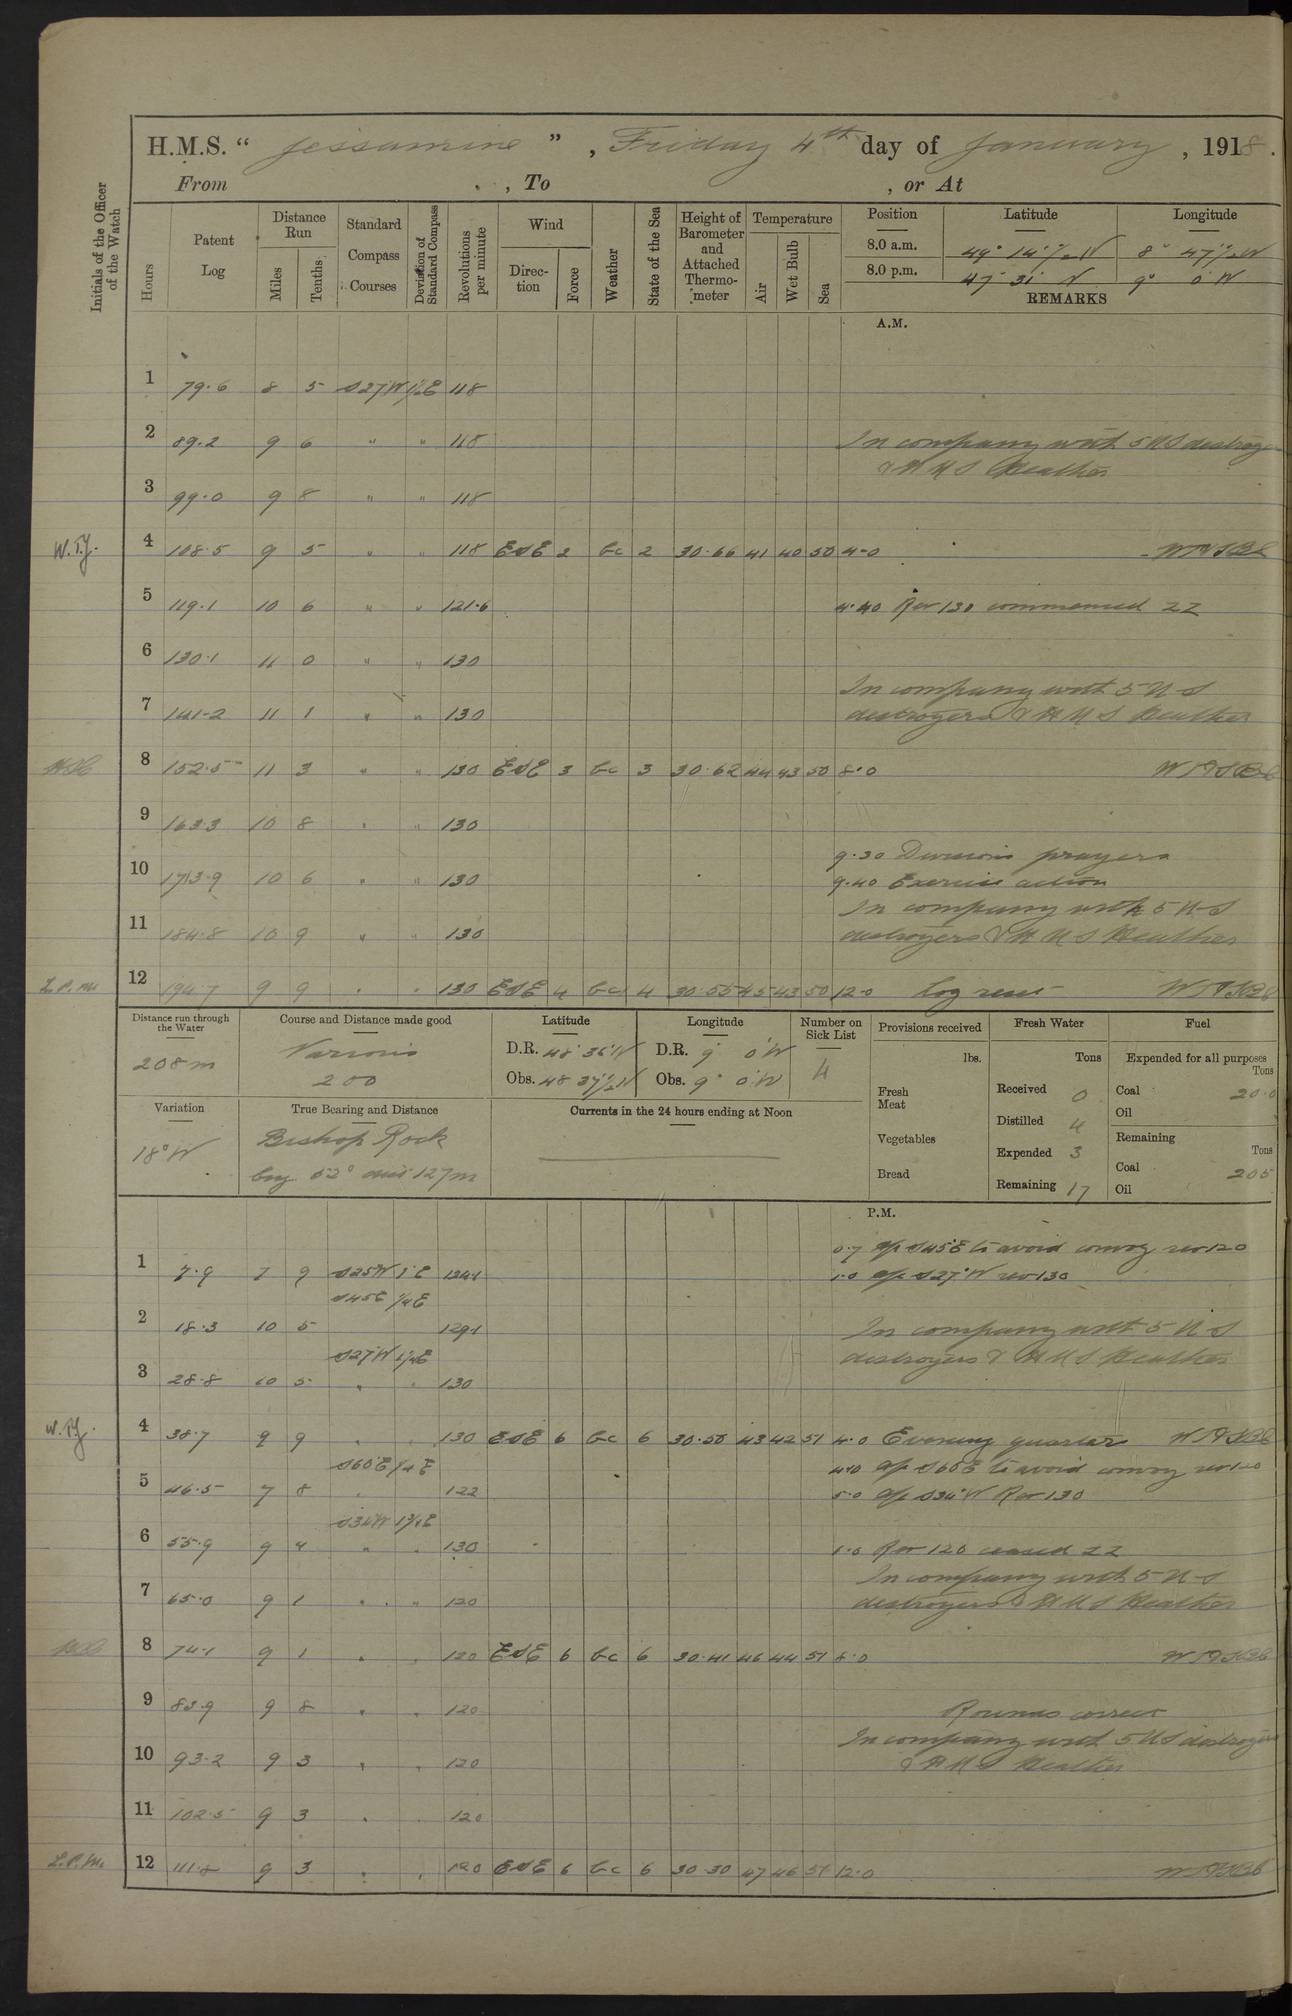 H.M.S. " Jessamine ", Friday 4th day of January, 1918.
From , To , or At
Initials of the Officer of the Watch
Hours
Patent Log
Distance Run
Miles
Tenths
Standard Compass Courses
Deviation of Standard Compass
Revolutions per minute
Wind
Direction
Force
Weather
State of the Sea
Height of Barometer and Attached Thermometer
Temperature
Air
Wet Bulb
Sea
Position Latitude Longitude
8.0 a.m. 49° 14'½N 8° 47'½W
8.0 p.m. 47° 31' N 9° 0' W
REMARKS
A.M.
1 79.6 8 5 S27°W 1½E 118
2 89.2 9 6 " " 118 In company with 5 US destroyers
& HMS Heather
3 99.0 9 8 " " 118
W.T.J. 4 108.5 9 5 " " 118 ESE 2 bc 2 30.66 41 40 50 4-0
5 119.1 10 6 " " 121.6 4.40 Rev 130 commenced ZZ
6 130.1 11 0 " " 130
In company with 5 U-S
7 141-2 11 1 " " 130 destroyers & HMS Heather
8 152.5 11 3 " " 130 ESE 3 bc 3 30.62 44 43 50 8.0
9 163.3 10 8 " " 130
9.30 Divisions prayers
10 173.9 10 6 " " 130 9.40 Exercise action
In company with 5 U-S
11 184.8 10 9 " " 130 destroyers & HMS Heather
L.P.M. 12 194.7 9 9 " " 130 ESE 4 bc 4 30.55 45 43 50 12.0 Log reset
Distance run through the Water
208m
Course and Distance made good
Various
200
Latitude
D.R. 48° 36'N
Obs. 48 37'½N
Longitude
D.R. 9° 0'W
Obs. 9° 0'W
Number on Sick List
4
Provisions received
lbs.
Fresh Meat
Vegetables
Bread
Fresh Water
Tons
Received 0
Distilled 4
Expended 3
Remaining 17
Fuel
Expended for all purposes
Tons
Coal 20.0
Oil
Remaining
Tons
Coal 205
Oil
Variation
18°W
True Bearing and Distance
Bishop Rock
brg 52° dist 127m
Currents in the 24 hours ending at Noon
P.M.
0.7 a/c S45°E to avoid convoy rev 120
1 7.9 7 9 S25W 1°E 124.1 1.0 a/c S27°W rev 130
S45E ¼E
2 18.3 10 5 129.1 In company with 5 U-S
S27W 1½E destroyers & HMS Heather
3 28.8 10 5 " " 130
W.T.J. 4 38.7 9 9 " " 130 ESE 6 bc 6 30.50 43 42 51 4.0 Evening quarters
S60E ¼E 4.10 a/c S60E to avoid convoy rev 120
5 46.5 7 8 122 5.0 a/c S34°W Rev 130
S34W 1¾E
6 55.9 9 4 " " 130 Rev 120 ceased ZZ
In company with 5 U-S
7 65.0 9 1 " " 120 destroyers & HMS Heather
8 74.1 9 1 " " 120 ESE 6 bc 6 30.41 46 44 51 8.0
9 83.9 9 8 " " 120 Rounds correct
In company with 5 US destroyers
10 93.2 9 3 " " 120 & HMS Heather
11 102.5 9 3 " " 120
L.P.M. 12 111.8 9 3 " " 120 ESE 6 bc 6 30.30 47 46 51 12.0